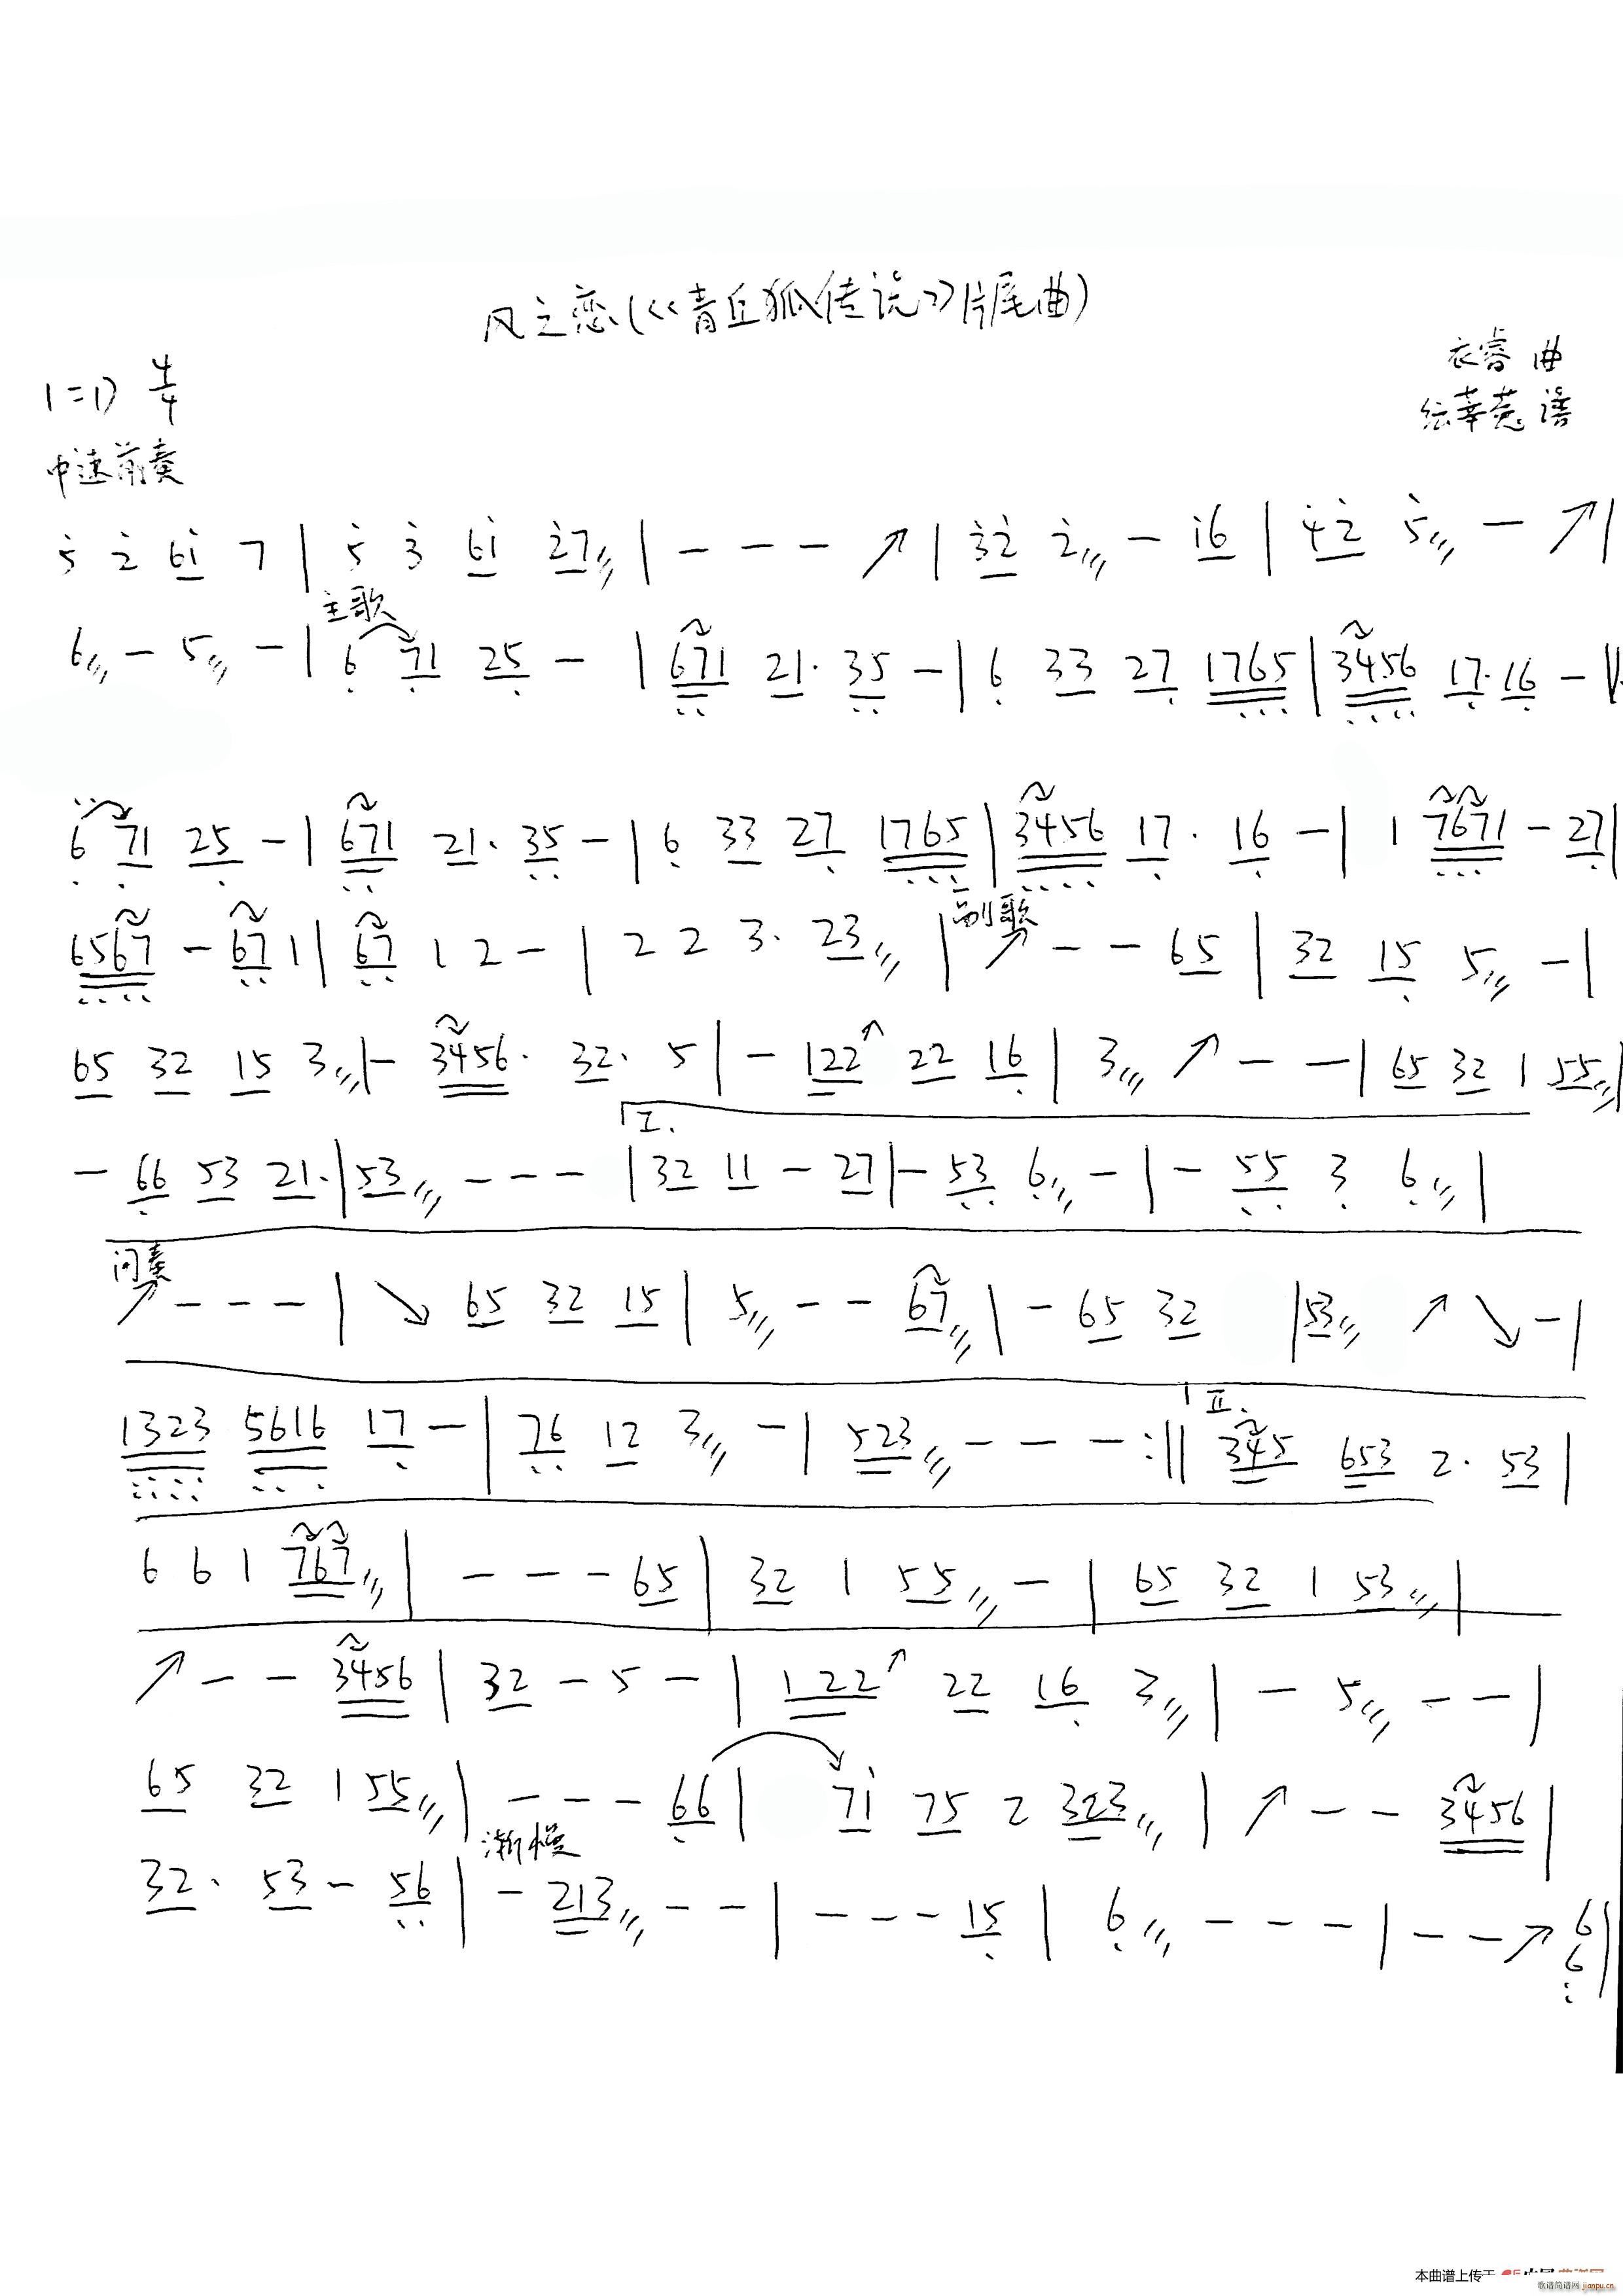 风之恋(<<青丘狐传说>>片尾曲)
1=D 4/4
衣睿 曲
纭莘莞 谱
中速前奏
5 2 61 7 | 5 3 61 27 | - - - ↗ | 32 2 - 16 | 42 5 - ↗ |
主歌
6 - 5 - | 6 71 25 - | 671 21· 35 - | 6 33 27 1765 | 3456 17·16 - ||
6 71 25 - | 671 21· 35 - | 6 33 27 1765 | 3456 17· 16 - | 1 7671 - 27 |
副歌
6567 - 67 1 | 67 1 2 - | 2 2 3· 23 | ↗ - - 65 | 32 15 5 - |
65 32 15 3 | - 3456· 32· 5 | - 122↗ 22 16 | 3 ↗ - - | 65 32 1 55 |
I.
- 66 53 21· | 53 - - - | 32 11 - 27 | - 53 6 - | - 55 3 6 |
间奏
↗ - - - | ↘ 65 32 15 | 5 - - 67 | - 65 32 | 53 ↗ ↘ - |
II.
1323 5616 17 - | 76 12 3 - | 523 - - - :|| 345 653 2· 53 |
6 6 1 767 | - - - 65 | 32 1 55 - | 65 32 1 53 |
↗ - - 3456 | 32 - 5 - | 122↗ 22 16 3 | - 5 - - |
65 32 1 55 | - - - 66 | 71 75 2 323 | ↗ - - 3456 |
渐慢
32· 53 - 56 | - 213 - - | - - - 15 | 6 - - - | - - ↗ 6 |
6
本曲谱上传于
歌谱简谱网 jianpu.cn